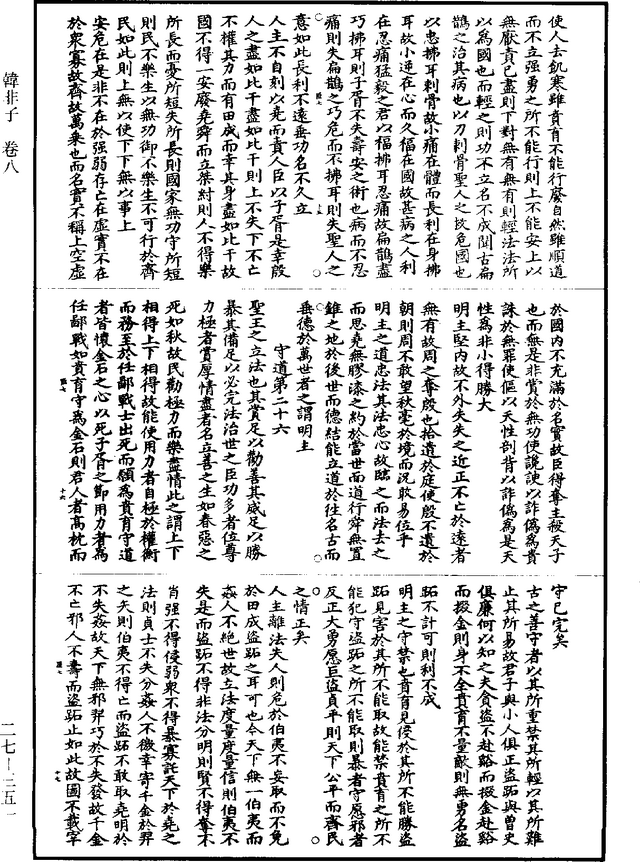 使人去飢寒雖賁育不能行廢自然雖順道
而不立强勇之所不能行則上不能安上以
無厭責已盡則下對無有無有則輕法法所
以為國也而輕之則功不立名不成聞古扁
鵲之治其病也以刀刺骨聖人之救危國也
以忠拂耳刺骨故小痛在體而長利在身拂
耳故小逆在心而久福在國故甚病之人利
在忍痛猛毅之君以福拂耳忍痛故扁鵲盡
巧拂耳則子胥不失壽安之術也病而不忍
痛則失扁鵲之巧危而不拂耳則失聖人之
意如此長利不遠垂功名不久立
人主不自刻以堯而責人臣以子胥是幸殷
人之盡如比干盡如比干則上不失下不亡
不權其力而有田成而幸其身盡如比干故
國不得一安廢堯舜而立桀紂則人不得樂
所長而憂所短失所長則國家無功守所短
則民不樂生以無功御不樂生不可行於齊
民如此則上無以使下下無以事上
安危在是非不在於强弱存亡在虛實不在
於衆寡故齊故萬乘也而名實不稱上空虛
於國內不充滿於名實故臣得奪主殺天子
也而無是非賞於無功使讒諛以詐偽為貴
誅於無罪使傴以天性剖背以詐偽為是天
性為非小得勝大
明主堅內故不外失失之近正不亡於遠者
無有故周之奪殷也拾遺於庭使殷不遺於
朝則周不敢望秋毫於境而況敢易位乎
明主之道忠法其法忠心故臨之而法去之
而思堯無膠漆之約於當世而道行舜無置
錐之地於後世而德結能立道於往名古而
垂德於萬世者之謂明主
守道第二十六
聖王之立法也其賞足以勸善其威足以勝
暴其備足以必完法治世之臣功多者位尊
力極者賞厚情盡者名立善之生如春惡之
死如秋故民勸極力而樂盡情此之謂上下
相得上下相得故能使用力者自極於權衡
而務至於任鄙戰士出死而願為賁育守道
者皆懷金石之心以死子胥之節用力者為
任鄙戰如賁育守為金石則君人者高枕而
守已完矣
古之善守者以其所重禁其所輕以其所難
止其所易故君子與小人俱正盜跖與曾史
俱廉何以知之夫貪盜不赴谿而掇金赴谿
而掇金則身不全賁育不量敵則無勇名盜
跖不計可則利不成
明主之守禁也賁育見侵於其所不能勝盜
跖見害於其所不能取故能禁賁育之所不
能犯守盜跖之所不能取則暴者守愿邪者
反正大勇愿巨盜貞平則天下公平而齊民
之情正矣
人主離法失人則危於伯夷不妄取而不免
於田成盜跖之耳可也今天下無一伯夷而
姦人不絕世故立法度量度量信則伯夷不
失是而盜跖不得非法分明則賢不得奪不
肖强不得侵弱衆不得暴寡託天下於堯之
法則貞士不失分姦人不徼幸寄千金於羿
之矢則伯夷不得亡而盜跖不敢取堯明於
不失姦故天下無邪羿巧於不失發故千金
不亡邪人不壽而盜跖止如此故圖不載宰
韓非子 卷八
二七-三五一